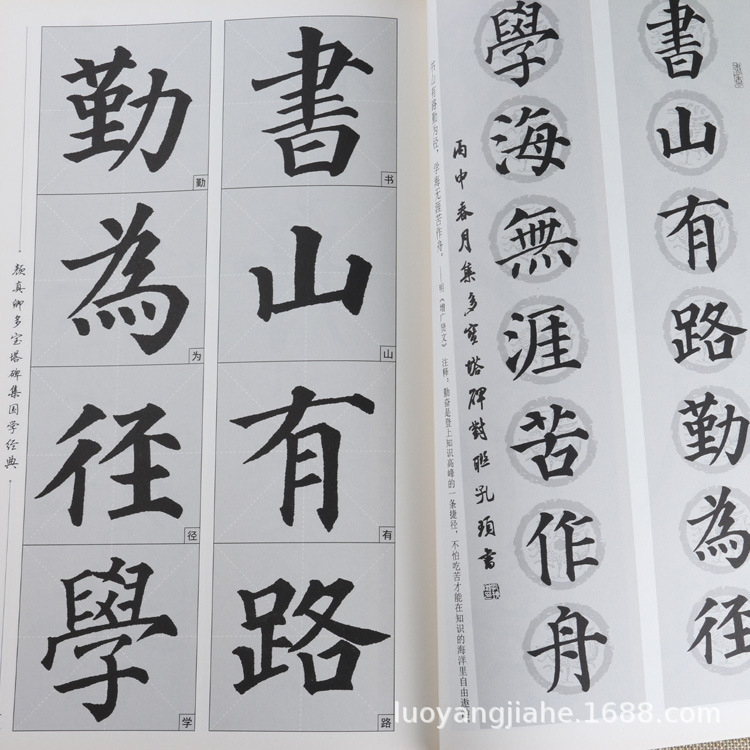 書山有路勤為径
學海無涯苦作舟
丙申春月集多寶塔碑對聯孔書
书山有路勤为径，学海无涯苦作舟。——明《增广贤文》 注释：勤奋是登上知识高峰的一条捷径，不怕吃苦才能在知识的海洋里自由遨
書山有路
书
山
有
路
勤為径學
勤
为
径
学
颜真卿多宝塔碑集国学经典
luoyangjiahe.1688.com